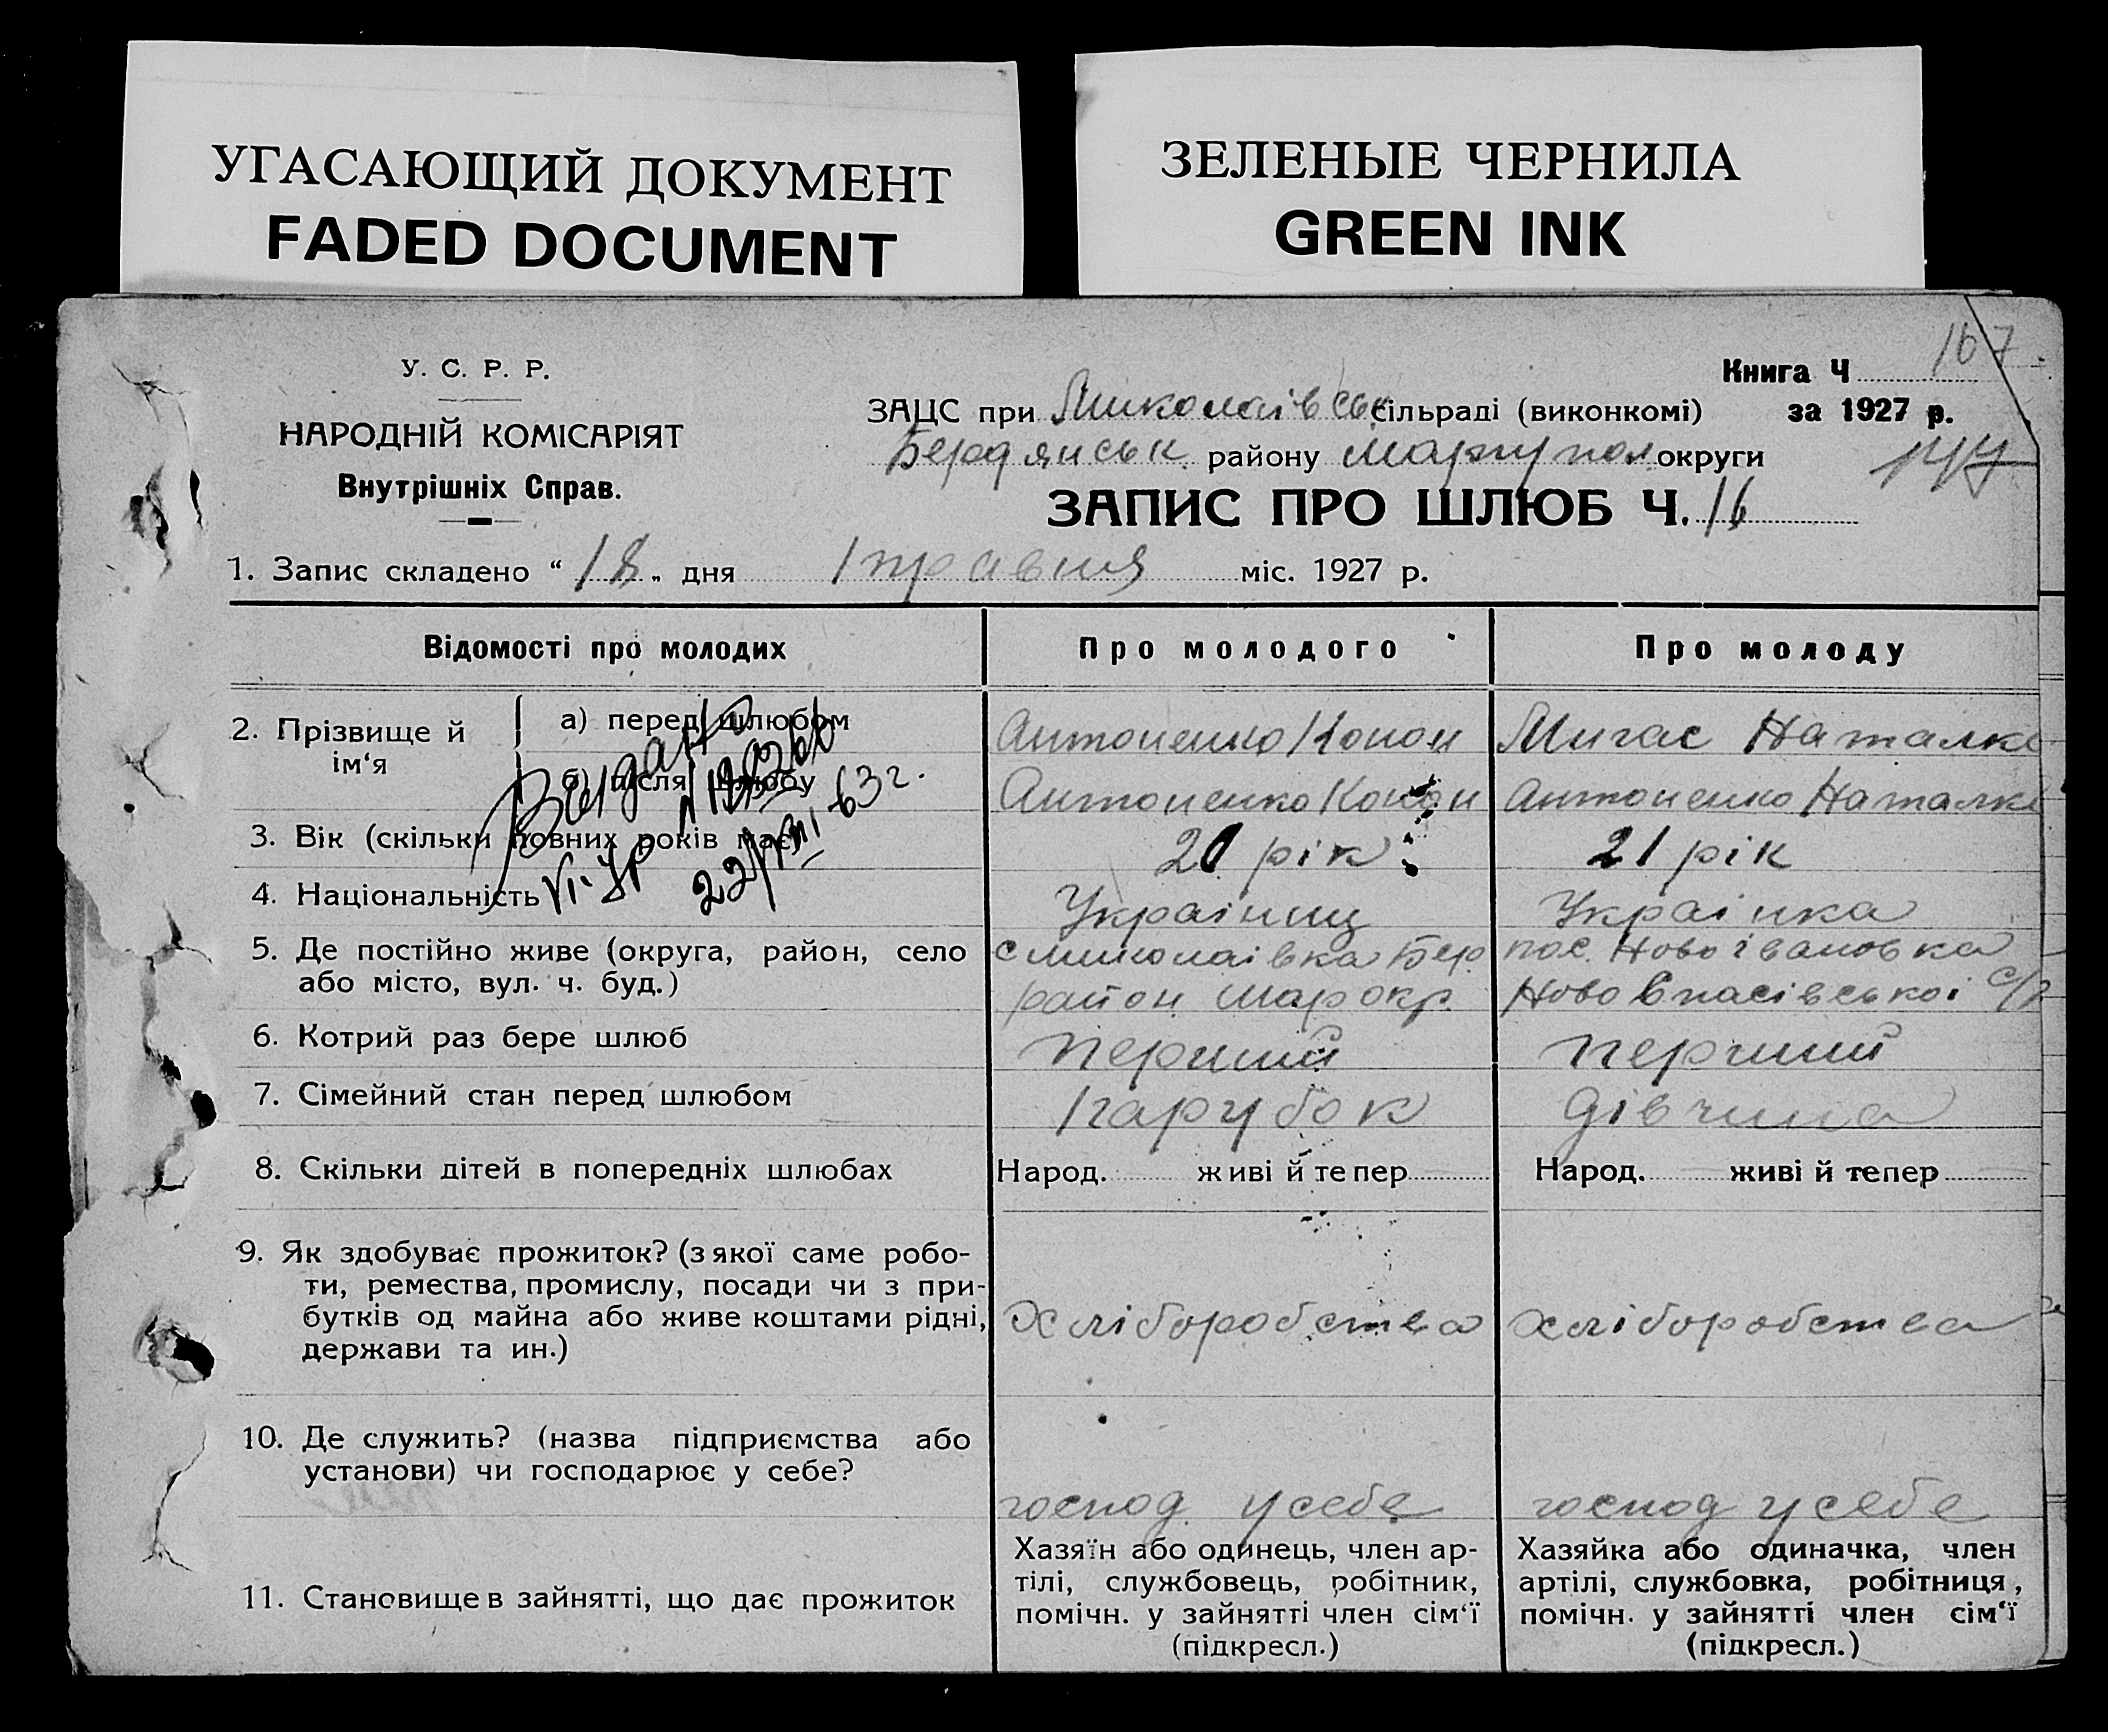 УГАСАЮЩИЙ ДОКУМЕНТ
FADED DOCUMENT
ЗЕЛЕНЫЕ ЧЕРНИЛА
GREEN INK
167
У. С. Р. Р.
НАРОДНІЙ КОМІСАРІЯТ
Внутрішніх Справ.
Книга Ч
ЗАЦС при Миколаївськ сільраді (виконкомі) за 1927 р.
Бердянськ району Маріупол округи
ЗАПИС ПРО ШЛЮБ Ч. 16
1. Запис складено “ 18 „ дня травня міс. 1927 р.
Відомості про молодих Про молодого Про молоду
2. Прізвище й ім‘я а) перед шлюбом Антоненко Конон Мигас Наталка
б) після шлюбу Антоненко Конон Антоненко Наталка
3. Вік (скільки повних років має) 20 рік 21 рік
22/VIII-63 г.
4. Національність Українец Українка
5. Де постійно живе (округа, район, село с Миколаівка Бер. пос. Ново івановка
або місто, вул. ч. буд.) район Мар окр. Ново Спасівськоі с/р
6. Котрий раз бере шлюб перший перший
7. Сімейний стан перед шлюбом парубок дівчина
8. Скільки дітей в попередніх шлюбах Народ. живі й тепер Народ. живі й тепер
9. Як здобуває прожиток? (з якої саме робо-
ти, ремества, промислу, посади чи з при-
бутків од майна або живе коштами рідні, хліборобства хліборобства
держави та ин.)
10. Де служить? (назва підприємства або
установи) чи господарює у себе?
господ. у себе господ у себе
11. Становище в зайнятті, що дає прожиток
Хазяїн або одинець, член ар-
тілі, службовець, робітник,
помічн. у зайнятті член сім‘ї
(підкресл.)
Хазяйка або одиначка, член
артілі, службовка, робітниця,
помічн. у зайнятті член сім‘ї
(підкресл.)